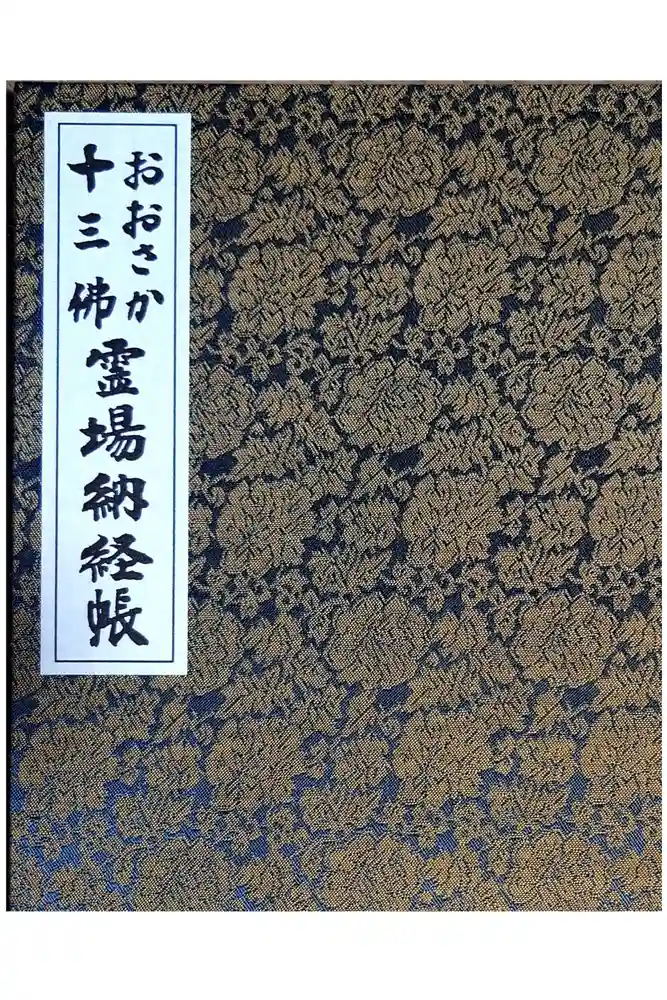 おおさか
十三佛
霊場納経帳